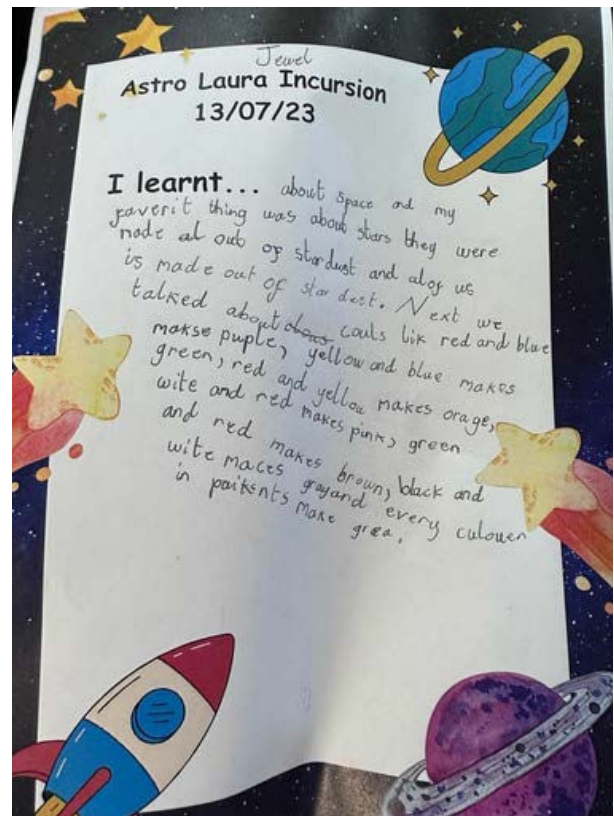 Jewel
Astro Laura Incursion
13/07/23
I learnt... about space and my
faverit thing was about stars they were
made al out of stardust and alof us
is made out of star dust. Next we
talked about couls lik red and blue
makse puple, yellow and blue makes
green, red and yellow makes orage,
wite and red makes pink, green
and red makes brown, black and
wite maces gray and every culouer
in paikents make